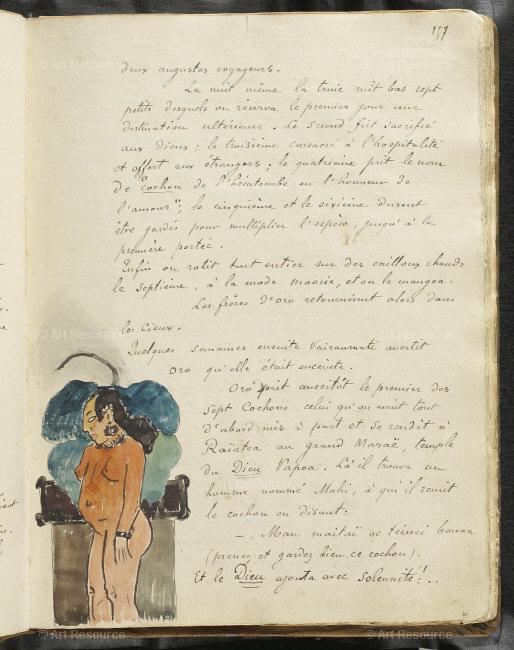 157
deux augustes voyageurs.
La nuit même la truie mit bas sept
petits desquels on réserva le premier pour une
destination ultérieure. Le second fût sacrifié
aux dieux ; le troisième consacré à l'hospitalité
et offert aux étrangers ; le quatrième prit le nom
de cochon de l'hécatombe en l'honneur de
l'amour" ; le cinquième et le sixième durent
être gardés pour multiplier l'espèce, jusqu'à la
première portée.
Enfin on rotit tout entier sur des cailloux chauds
le septième, à la mode maorie, et on le mangea.
Les frères d'Oro retournèrent alors dans
les Cieux.
Quelques semaines ensuite Vaïraumati avertit
Oro qu'elle était enceinte.
Oro prit aussitôt le premier des
Sept Cochons, celui qu'on avait tout
d'abord mis à part et se rendit à
Raïatea au grand Maraë, temple
du Dieu Vapoa. Là il trouva un
homme nommé Mahi, à qui il remit
le cochon en disant:
— Mau maitaï oe teinei bouaa
(prenez et gardez bien ce cochon).
Et le Dieu ajouta avec Solennité! ..
© Art Resource
© Art Resource
© Art Resource
© Art Resource
© Art Resource
© Art Resource